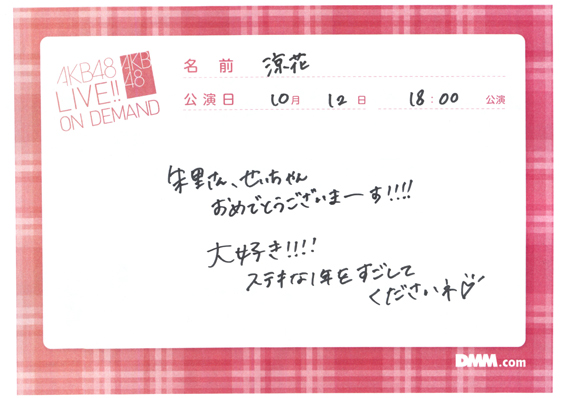 AKB48
LIVE!!
ON DEMAND
AKB
48
名前 涼花
公演日 10月 12日 18:00 公演
朱里さん、せいちゃん
おめでとうございまーす!!!!
大好き!!!!
ステキな1年をすごして
くださいね♡
DMM.com